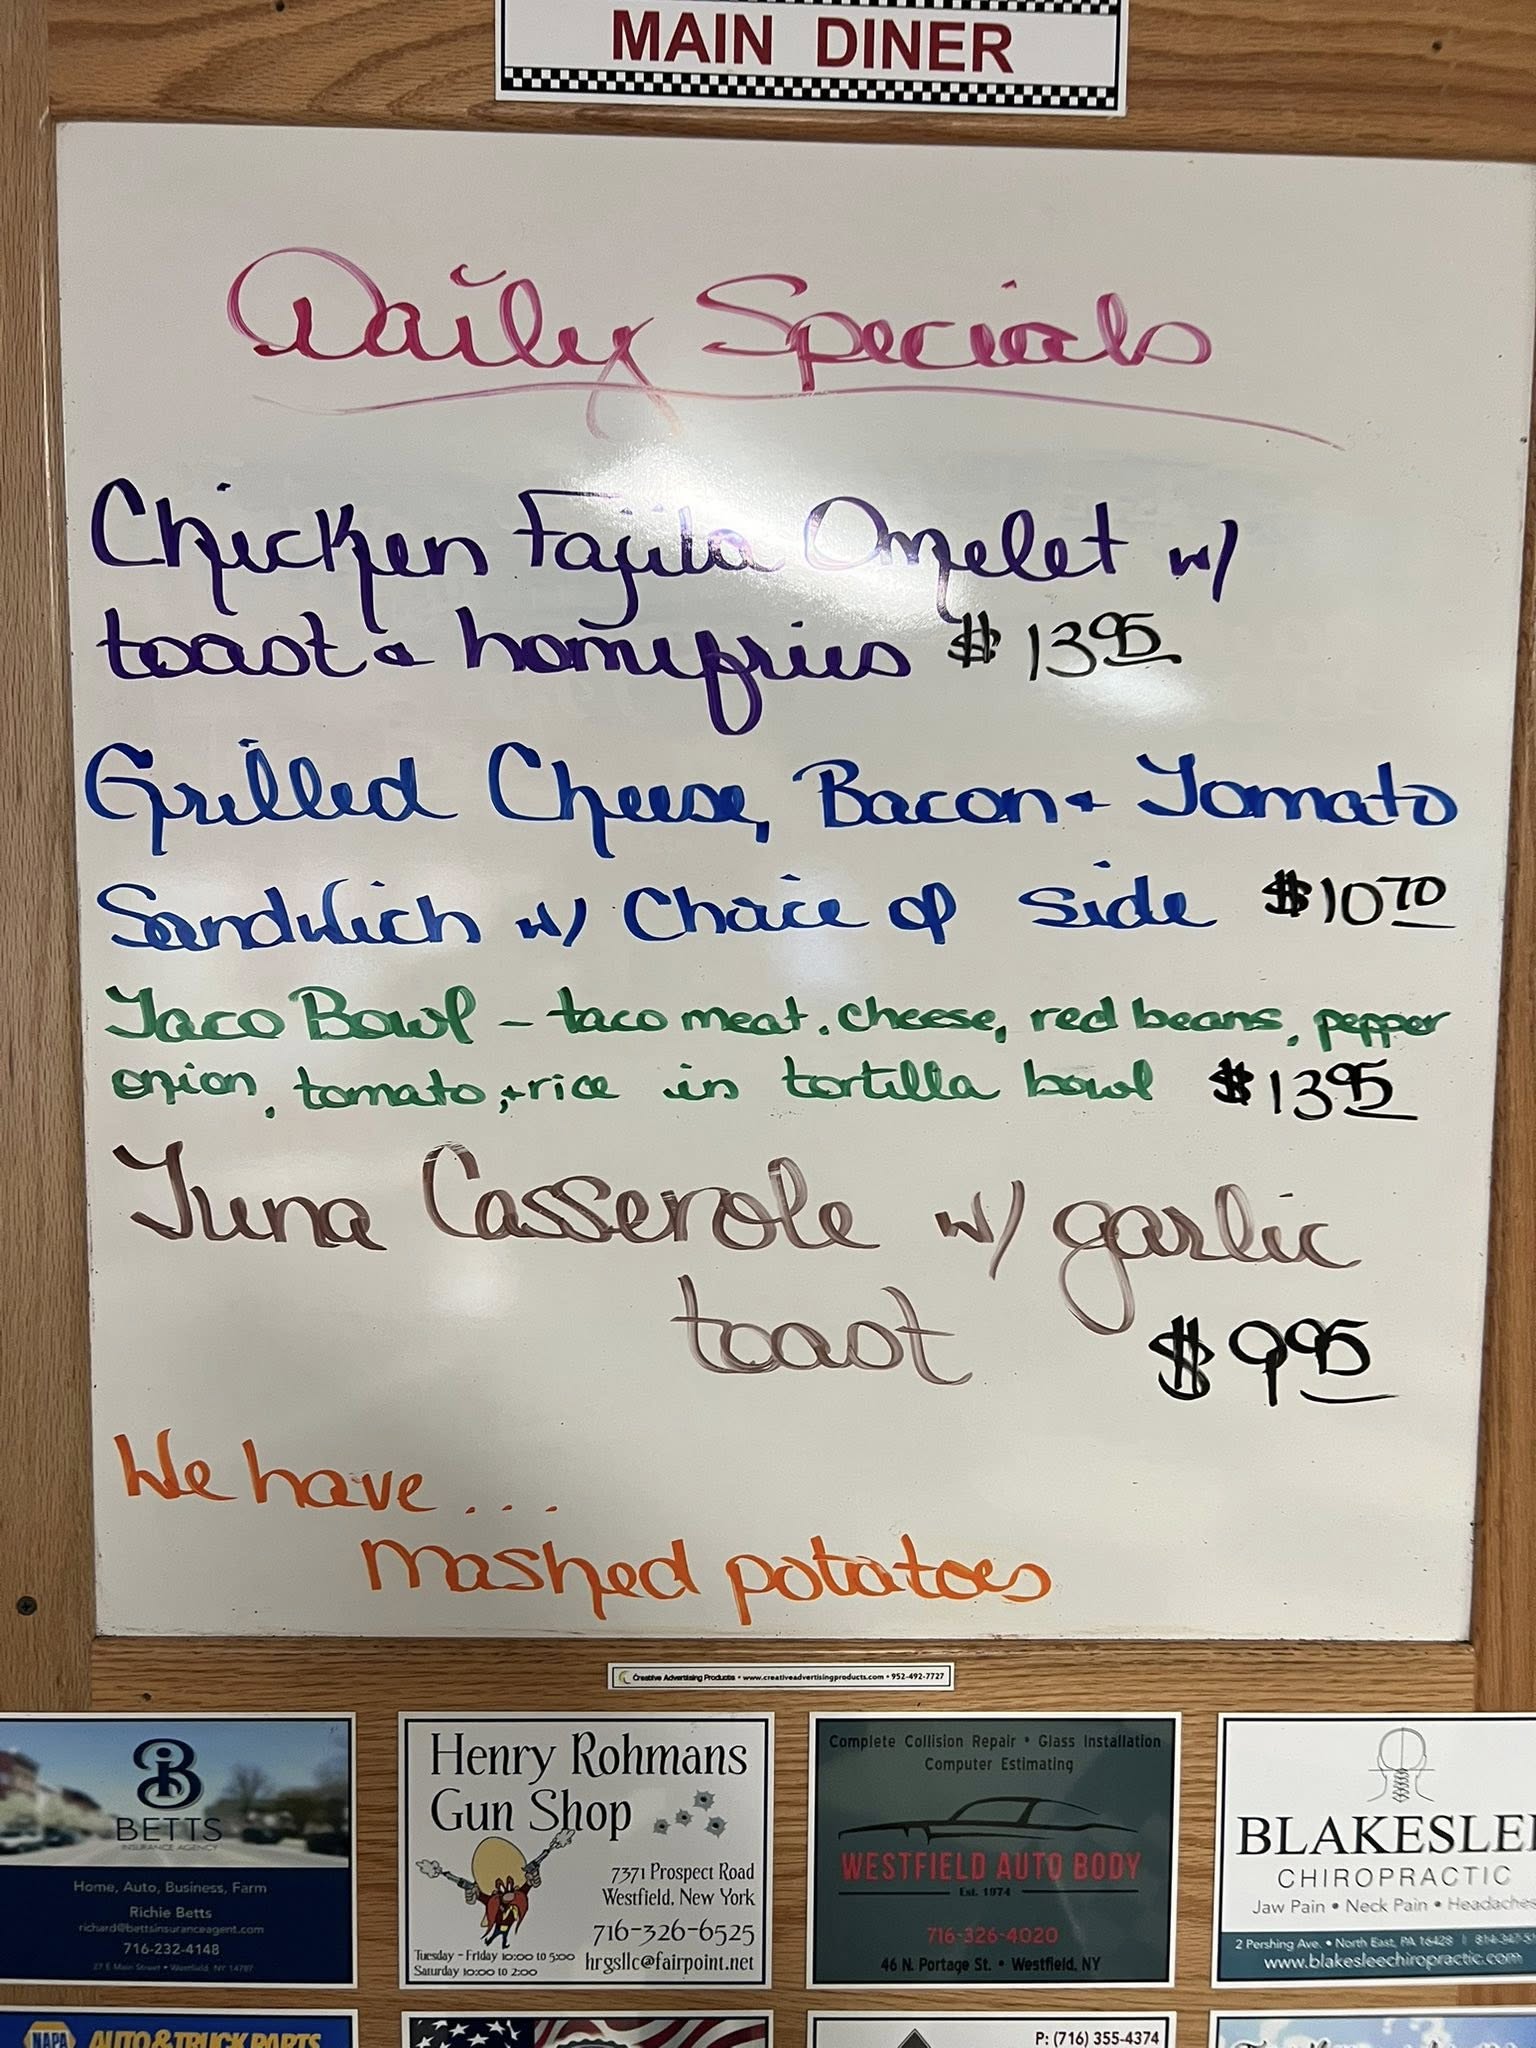 MAIN DINER
Daily Specials
Chicken Fajita Omelet w/
toast & homefries $13.95
Grilled Cheese, Bacon & Tomato
Sandwich w/ Choice of side $10.70
Taco Bowl - taco meat, cheese, red beans, pepper
onion, tomato, & rice in tortilla bowl $13.95
Tuna Casserole w/ garlic
toast $9.95
We have . . .
mashed potatoes
Creative Advertising Products • www.creativeadvertisingproducts.com • 952-492-7727
B
BETTS
INSURANCE AGENCY
Home, Auto, Business, Farm
Richie Betts
richard@bettsinsuranceagent.com
716-232-4148
27 E Main Street • Westfield, NY 14787
Henry Rohmans
Gun Shop
7371 Prospect Road
Westfield, New York
716-326-6525
Tuesday - Friday 10:00 to 5:00
Saturday 10:00 to 2:00
hrgsllc@fairpoint.net
Complete Collision Repair • Glass Installation
Computer Estimating
WESTFIELD AUTO BODY
Est. 1974
716-326-4020
46 N. Portage St. • Westfield, NY
BLAKESLE
CHIROPRACTIC
Jaw Pain • Neck Pain • Headaches
2 Pershing Ave. • North East, PA 16428 | 814-347-51
www.blakesleechiropractic.com
NAPA AUTO & TRUCK PARTS
P: (716) 355-4374